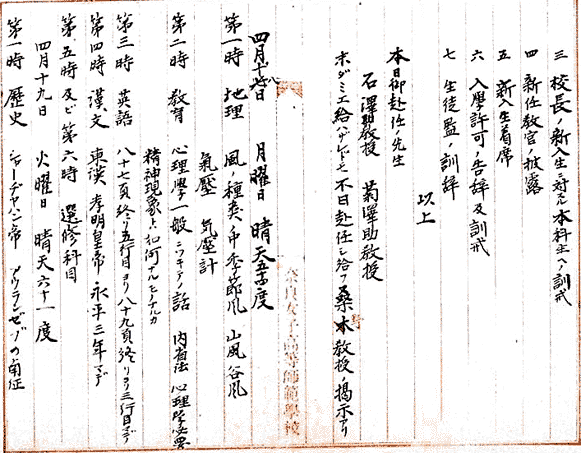 三 校長ノ新入生ニ対スル本科生ヘノ訓戒
四 新任教官ノ披露
五 新入生着席
六 入學許可ノ告辞及訓戒
七 生徒監ノ訓辞
以上
本日御赴任ノ先生
石澤助教授 菊澤助教授
未ダミエ給ハザレドモ不日赴任シ給フ桑木教授ノ掲示アリ
奈良女子高等師範學校
四月十八日 月曜日 晴天五十四度
第一時 地理 風ノ種類 季節風 山風谷風
氣壓 気圧計
第二時 教育 心理學一般ニツキテノ話 内省法
精神現象トハ如何ナルモノナルカ
第三時 英語 八十七頁終リ五行目ヨリ八十九頁終リヨリ三行目マデ
第四時 漢文 東漢 孝明皇帝 永平三年マデ
第五時及ビ第六時 選修科目
四月十九日 火曜日 晴天六十一度
第一時 歴史 シャージャハン帝 アウランゼブの南征